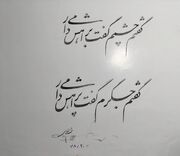 گفتم چشمم گفت براهش می دار
گفتم جگرم گفت پر آهش می دار